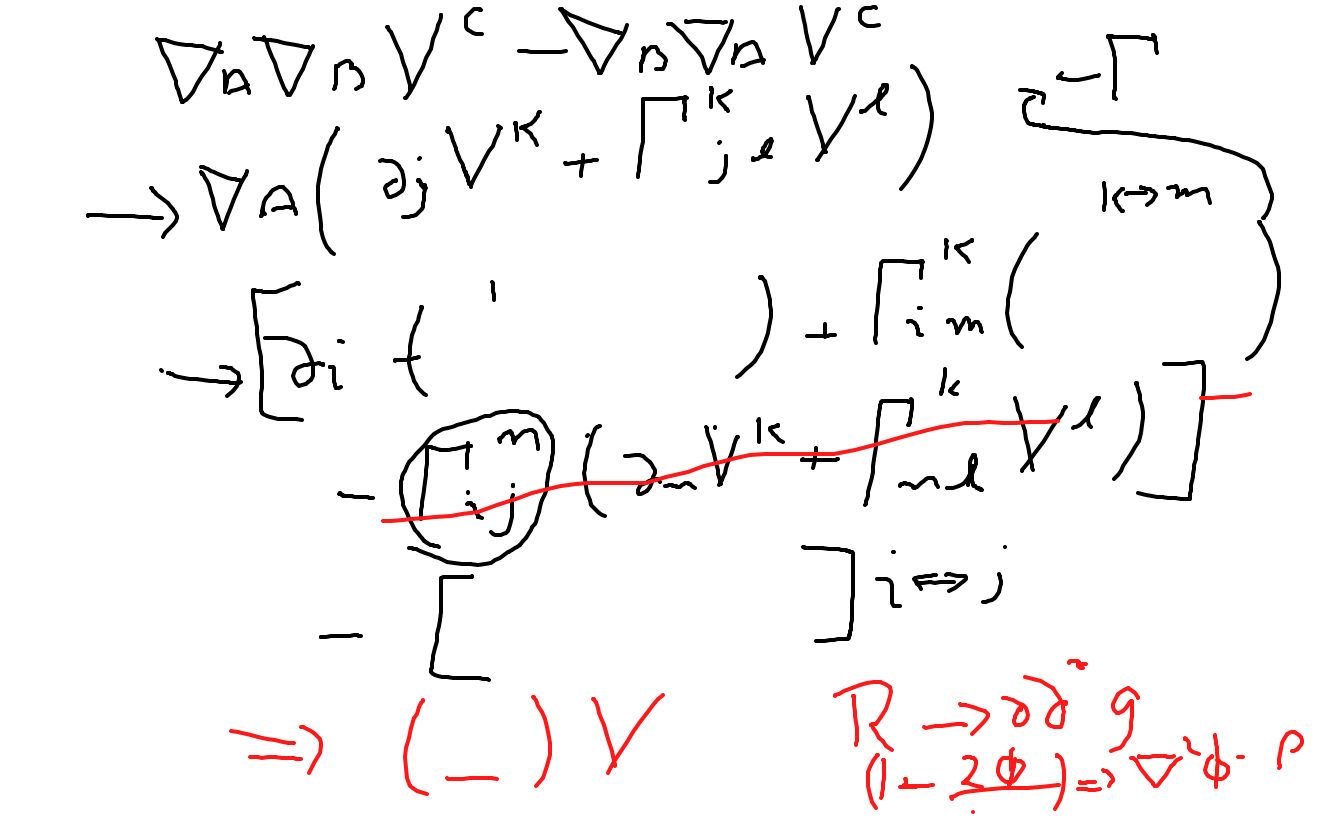 ∇_A ∇_B V^C − ∇_B ∇_A V^C
← Γ
→ ∇_A ( ∂_j V^K + Γ^K_{jℓ} V^ℓ )
k ↔ m
→ [ ∂_i ( ) + Γ^K_{im} ( )
− Γ^m_{ij} ( ∂_m V^K + Γ^k_{mℓ} V^ℓ ) ] −
− [ ] i ↔ j
⇒ ( _ ) V
R → ∂∂ g
(1 − 2Φ) ⇒ ∇²Φ − ρ